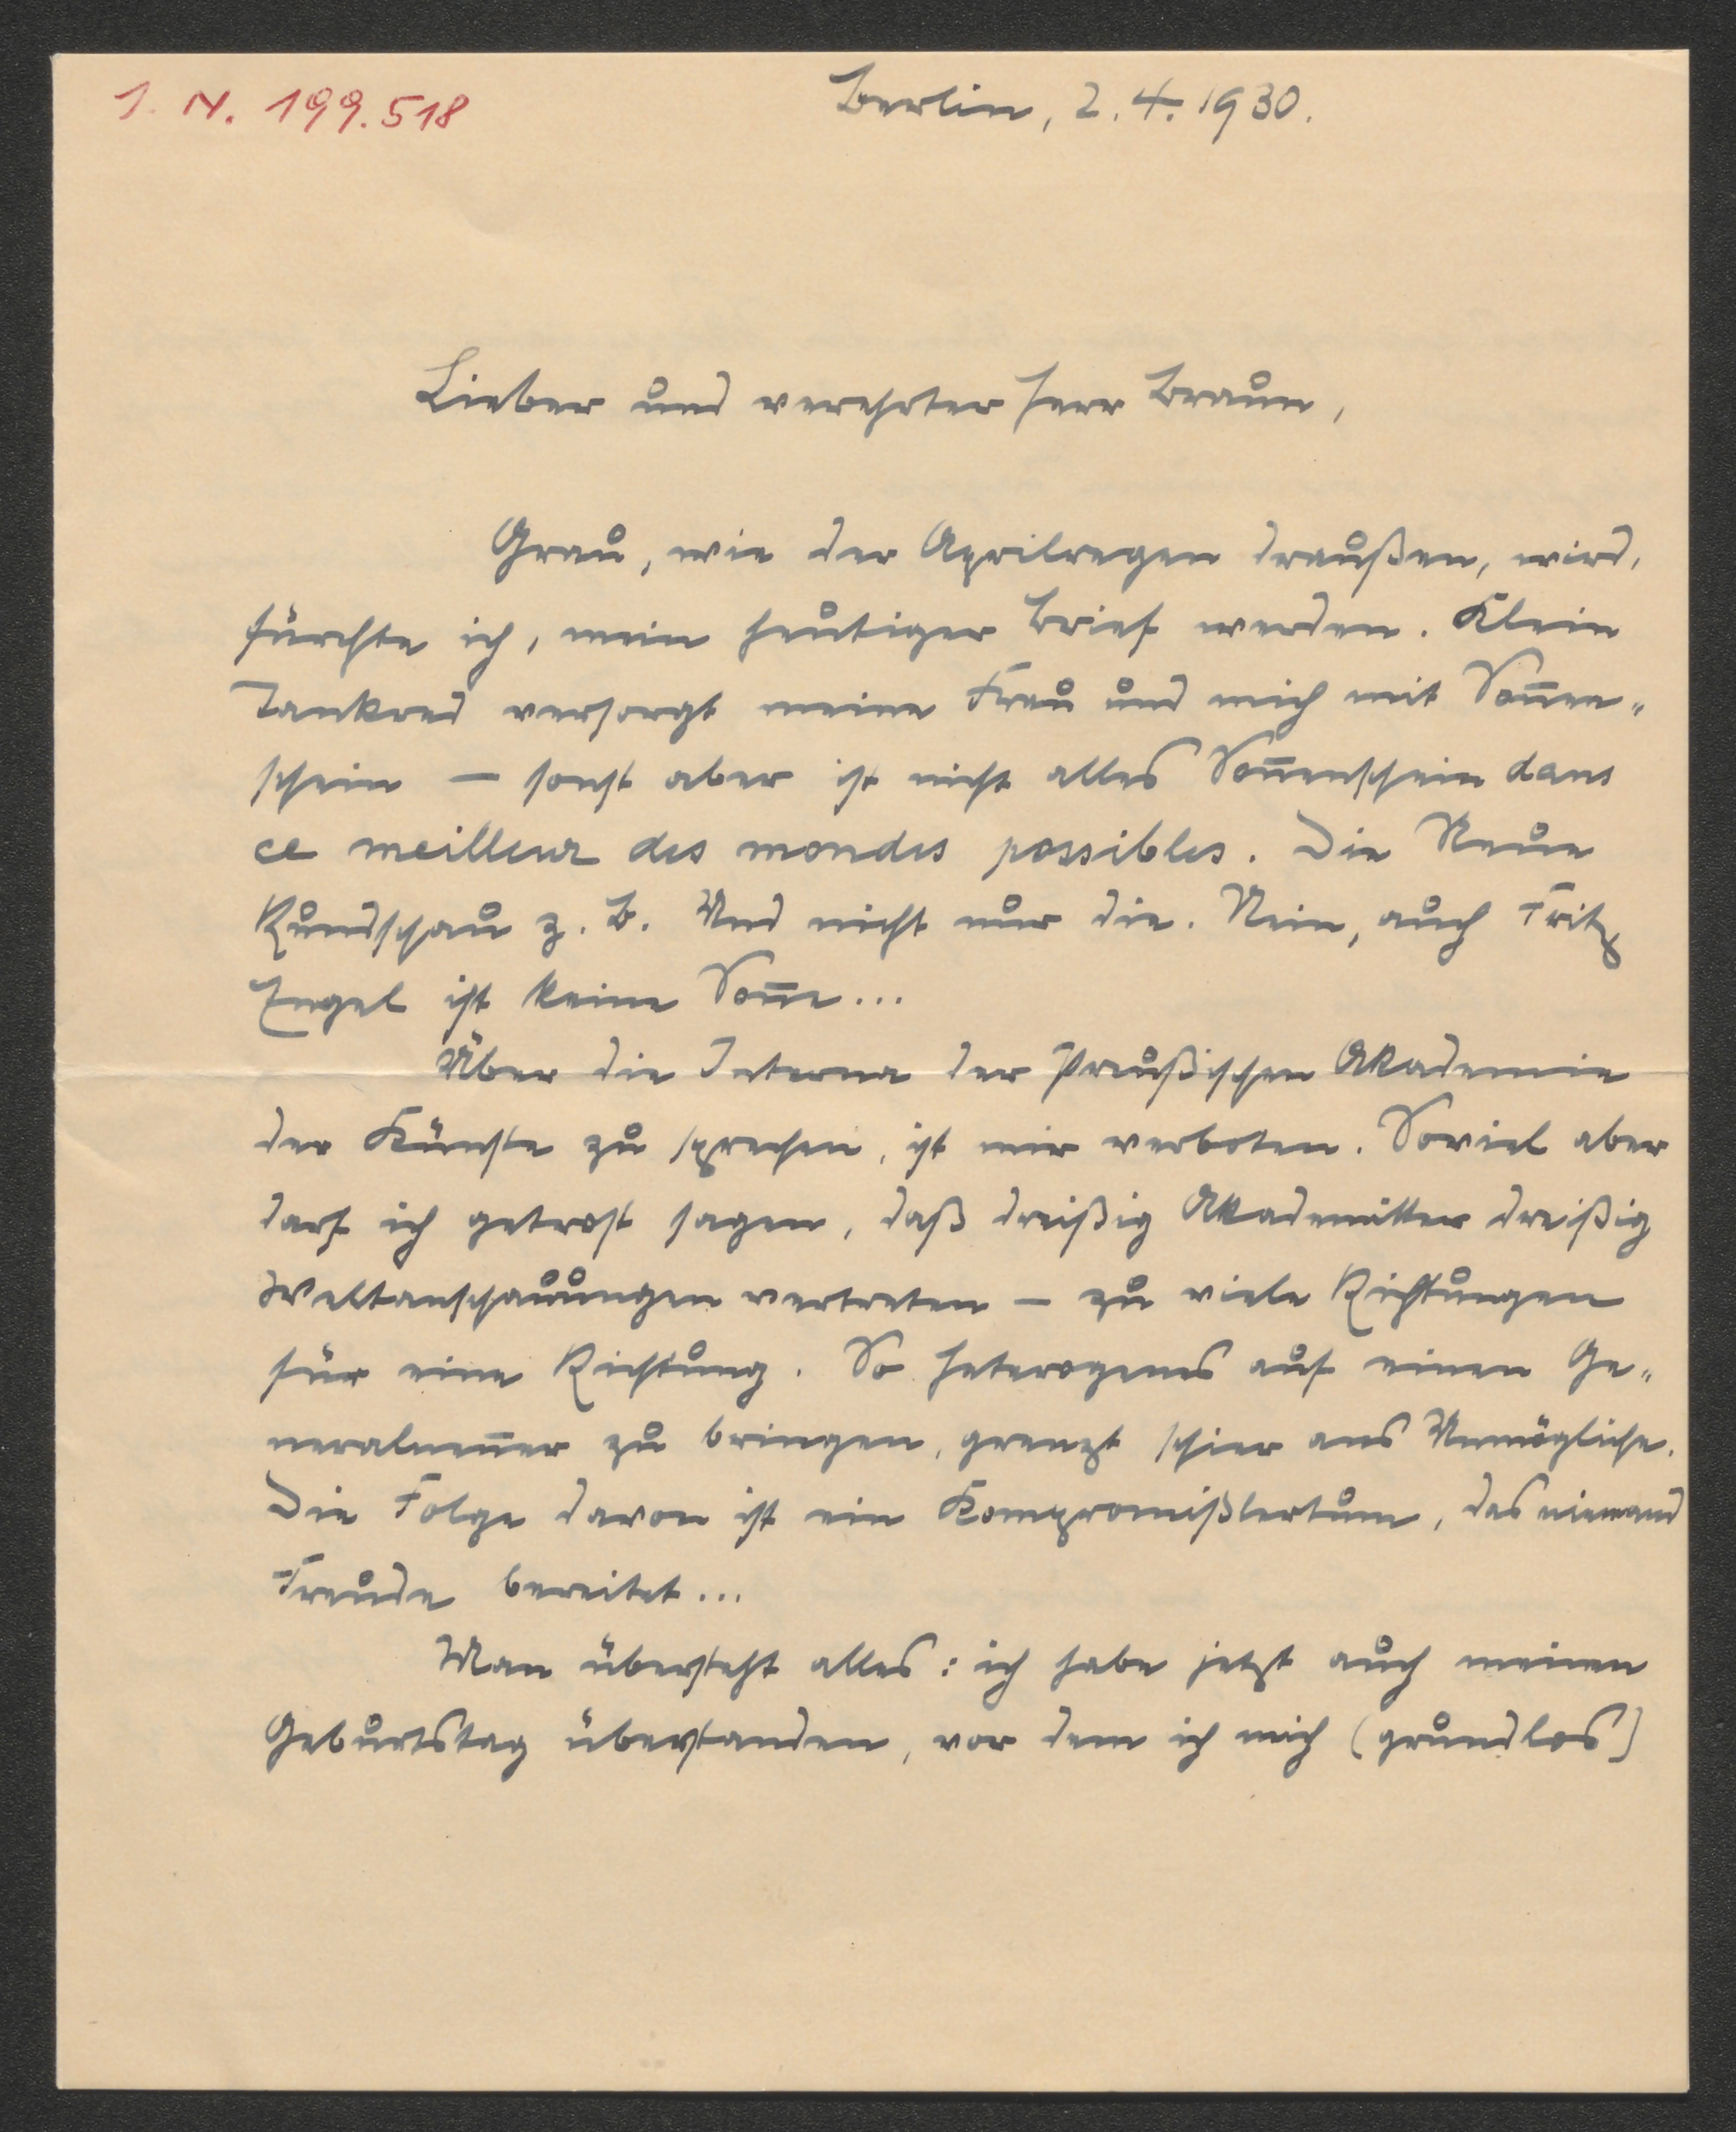 I. N. 199.518
Berlin, 2. 4. 1930.
Lieber und verehrter Herr Braun,
Grau, wie der Aprilregen draußen, wird,
fürchte ich, mein heutiger Brief werden. Klein
Tankred versorgt meine Frau und mich mit Son̅en-
schein – sonst aber ist nicht alles Son̅enschein dans
ce meilleur des mondes possibles. Die Neue
Rundschau z. B. Und nicht nur die. Nein, auch Fritz
Engel ist keine Son̅e...
Über die Interna der Preußischen Akademie
der Künste zu sprechen, ist mir verboten. Soviel aber
darf ich getrost sagen, daß dreißig Akademiker dreißig
Weltanschauungen vertreten – zu viele Richtungen
für eine Richtung. So Heterogenes auf einen Ge-
neralnen̅er zu bringen, grenzt schier ans Unmögliche.
Die Folge davon ist ein Kompromißlertum, das niemand
Freude bereitet...
Man übersteht alles: ich habe jetzt auch meinen
Geburtstag überstanden, vor dem ich mich (grundlos)